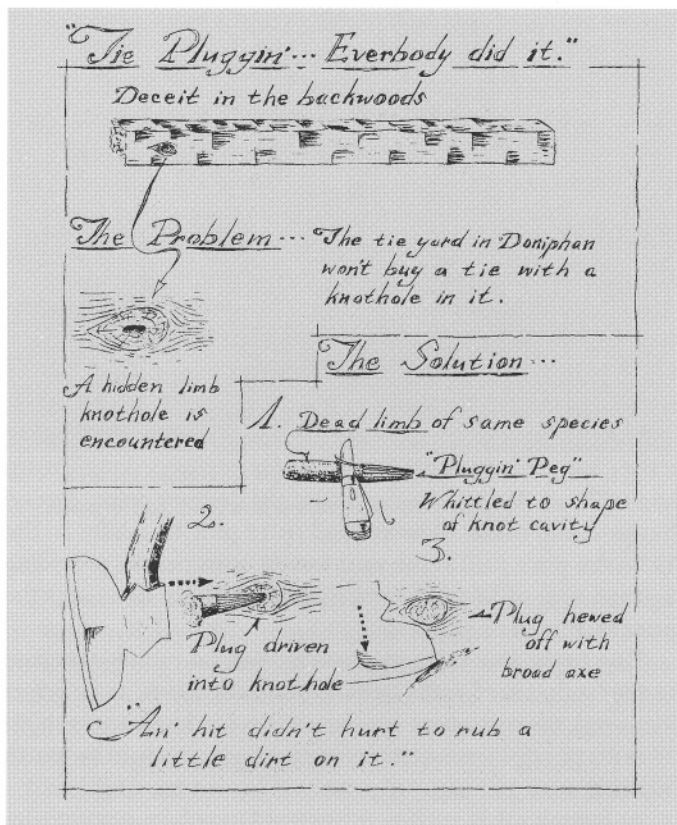 "Tie Pluggin'... Everbody did it."
Deceit in the backwoods
The Problem...
The tie yard in Doniphan
won't buy a tie with a
knothole in it.
A hidden limb
knothole is
encountered
The Solution...
1. Dead limb of same species
"Pluggin' Peg"
Whittled to shape
of knot cavity
2.
Plug driven
into knothole
3.
Plug hewed
off with
broad axe
"An' hit didn't hurt to rub a
little dirt on it."